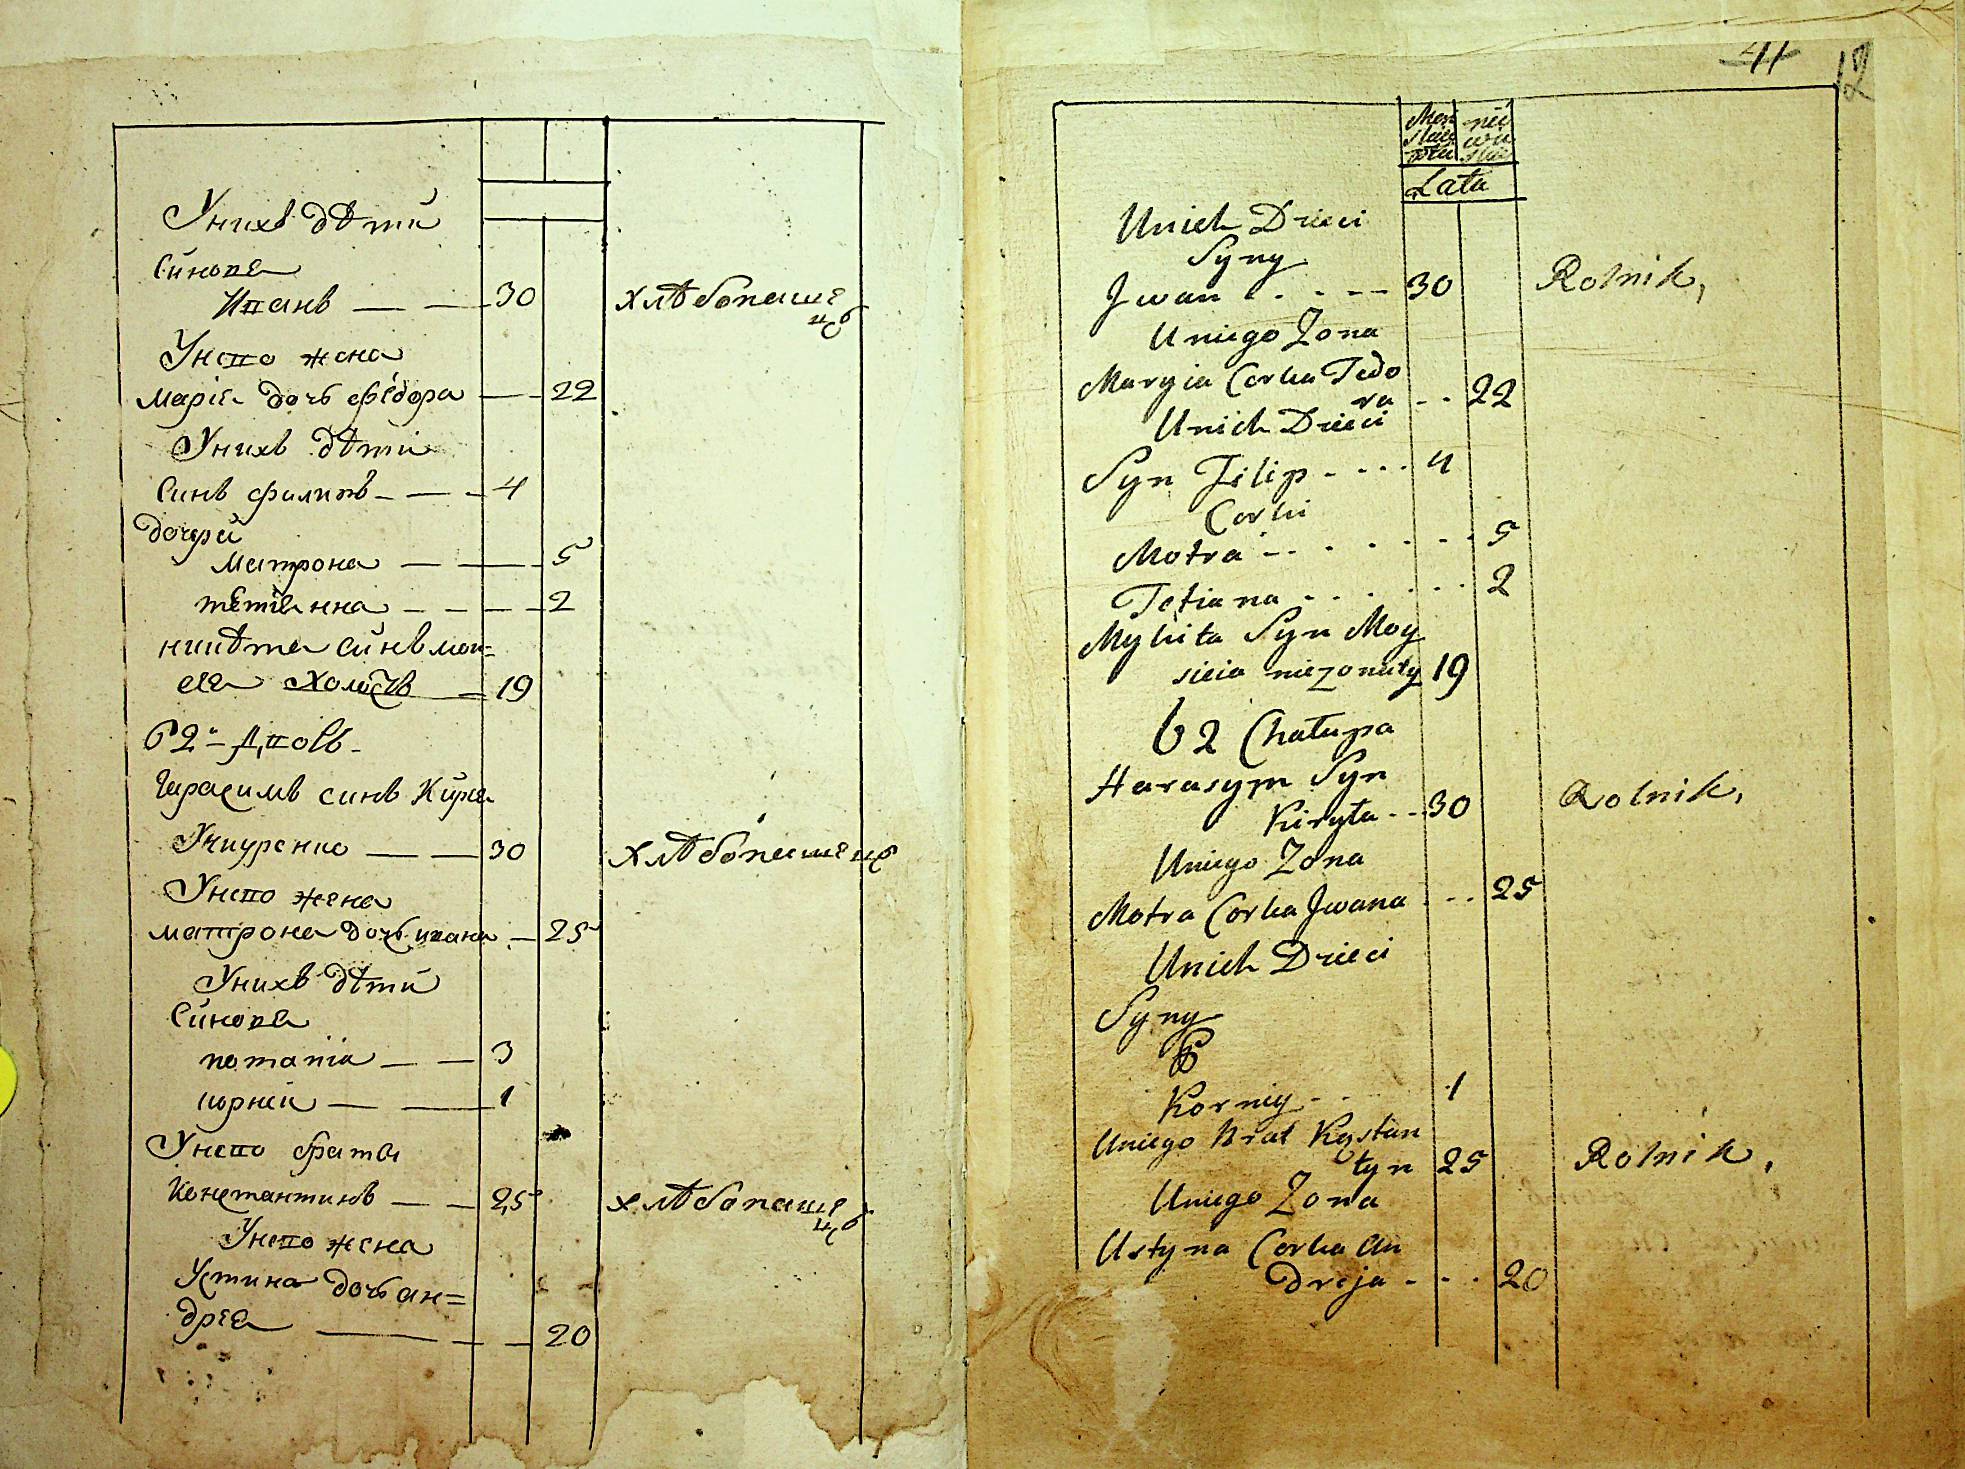 Унихъ дѣти
Синове
Иванъ 30 хлѣбопаше
цъ
Унего жена
Марія дочь федора 22
Унихъ дѣти
Синъ филипъ 4
дочери
Матрона 5
тетіанна 2
никѣта синъ мои=
сея холостъ 19
62 двовъ
Герасимъ синъ Кири
30 хлѣбопашецъ
Унего жена
матрона дочь ивана 25
Унихъ дѣти
Синове
потапій 3
корней 1
Унего братъ
Константинъ 25 хлѣбопаше
цъ
Унего жена
Устина дочь ан=
дрея 20
41 12
Męz nie
skie wie
płci skie
Lata
Unich Dzieci
Syny
Jwan 30 Rolnik,
Uniego Zona
Maryia Corka Fedo
ra 22
Unich Dzieci
Syn Filip 4
Corki
Motra 5
Tetiana 2
Mykita Syn Moy
sieia niezonaty 19
62 Chałupa
Harasym Syn
Kiryła 30 Rolnik,
Uniego Zona
Motra Corka Jwana 25
Unich Dzieci
Syny
Korniy 1
Uniego Brat Kostan
tyn 25 Rolnik,
Uniego Zona
Ustyna Corka An
dreja 20